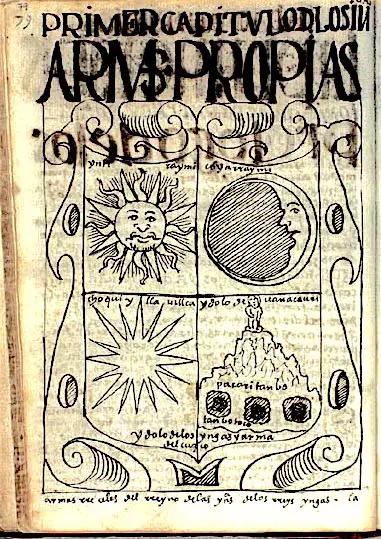 79
PRIMER CAPITVLO D LOS IN
ARMAS PROPIAS
ynti raymi coya raymi
choqui ylla uillca ydolo de uanacauri
pacaritanbo
tanbotoco
ydolo de los yngas y arma
del cuzco
armas rreales del rreyno de las yns de los reys yngas - la